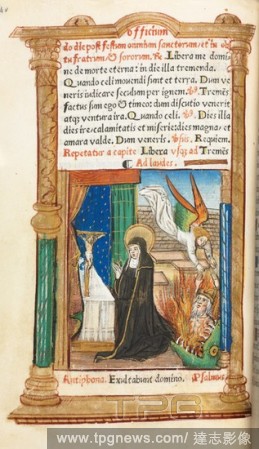 officium
do āle post festum omnium sanctorum, et in obi
tu fratrum, & sororum. ℟. Libera me domi-
ne de morte eterna: in die illa tremenda.
Quando celi movendi sunt et terra. Dum ve
neris iudicare seculum per ignem. ℣. Tremēs
factus sum ego & timeo: dum discutio venerit
atque ventura ira. Quando celi. ℣. Dies illa
dies ire, calamitatis et miserie: dies magna, et
amara valde. Dum veneris. Requiem.
Repetatur a capite Libera usque ad Tremēs
¶ Ad laudes.
Antiphona. Exultabunt domino. Psalmus.
TPG
www.tpgnews.com / 達志影像